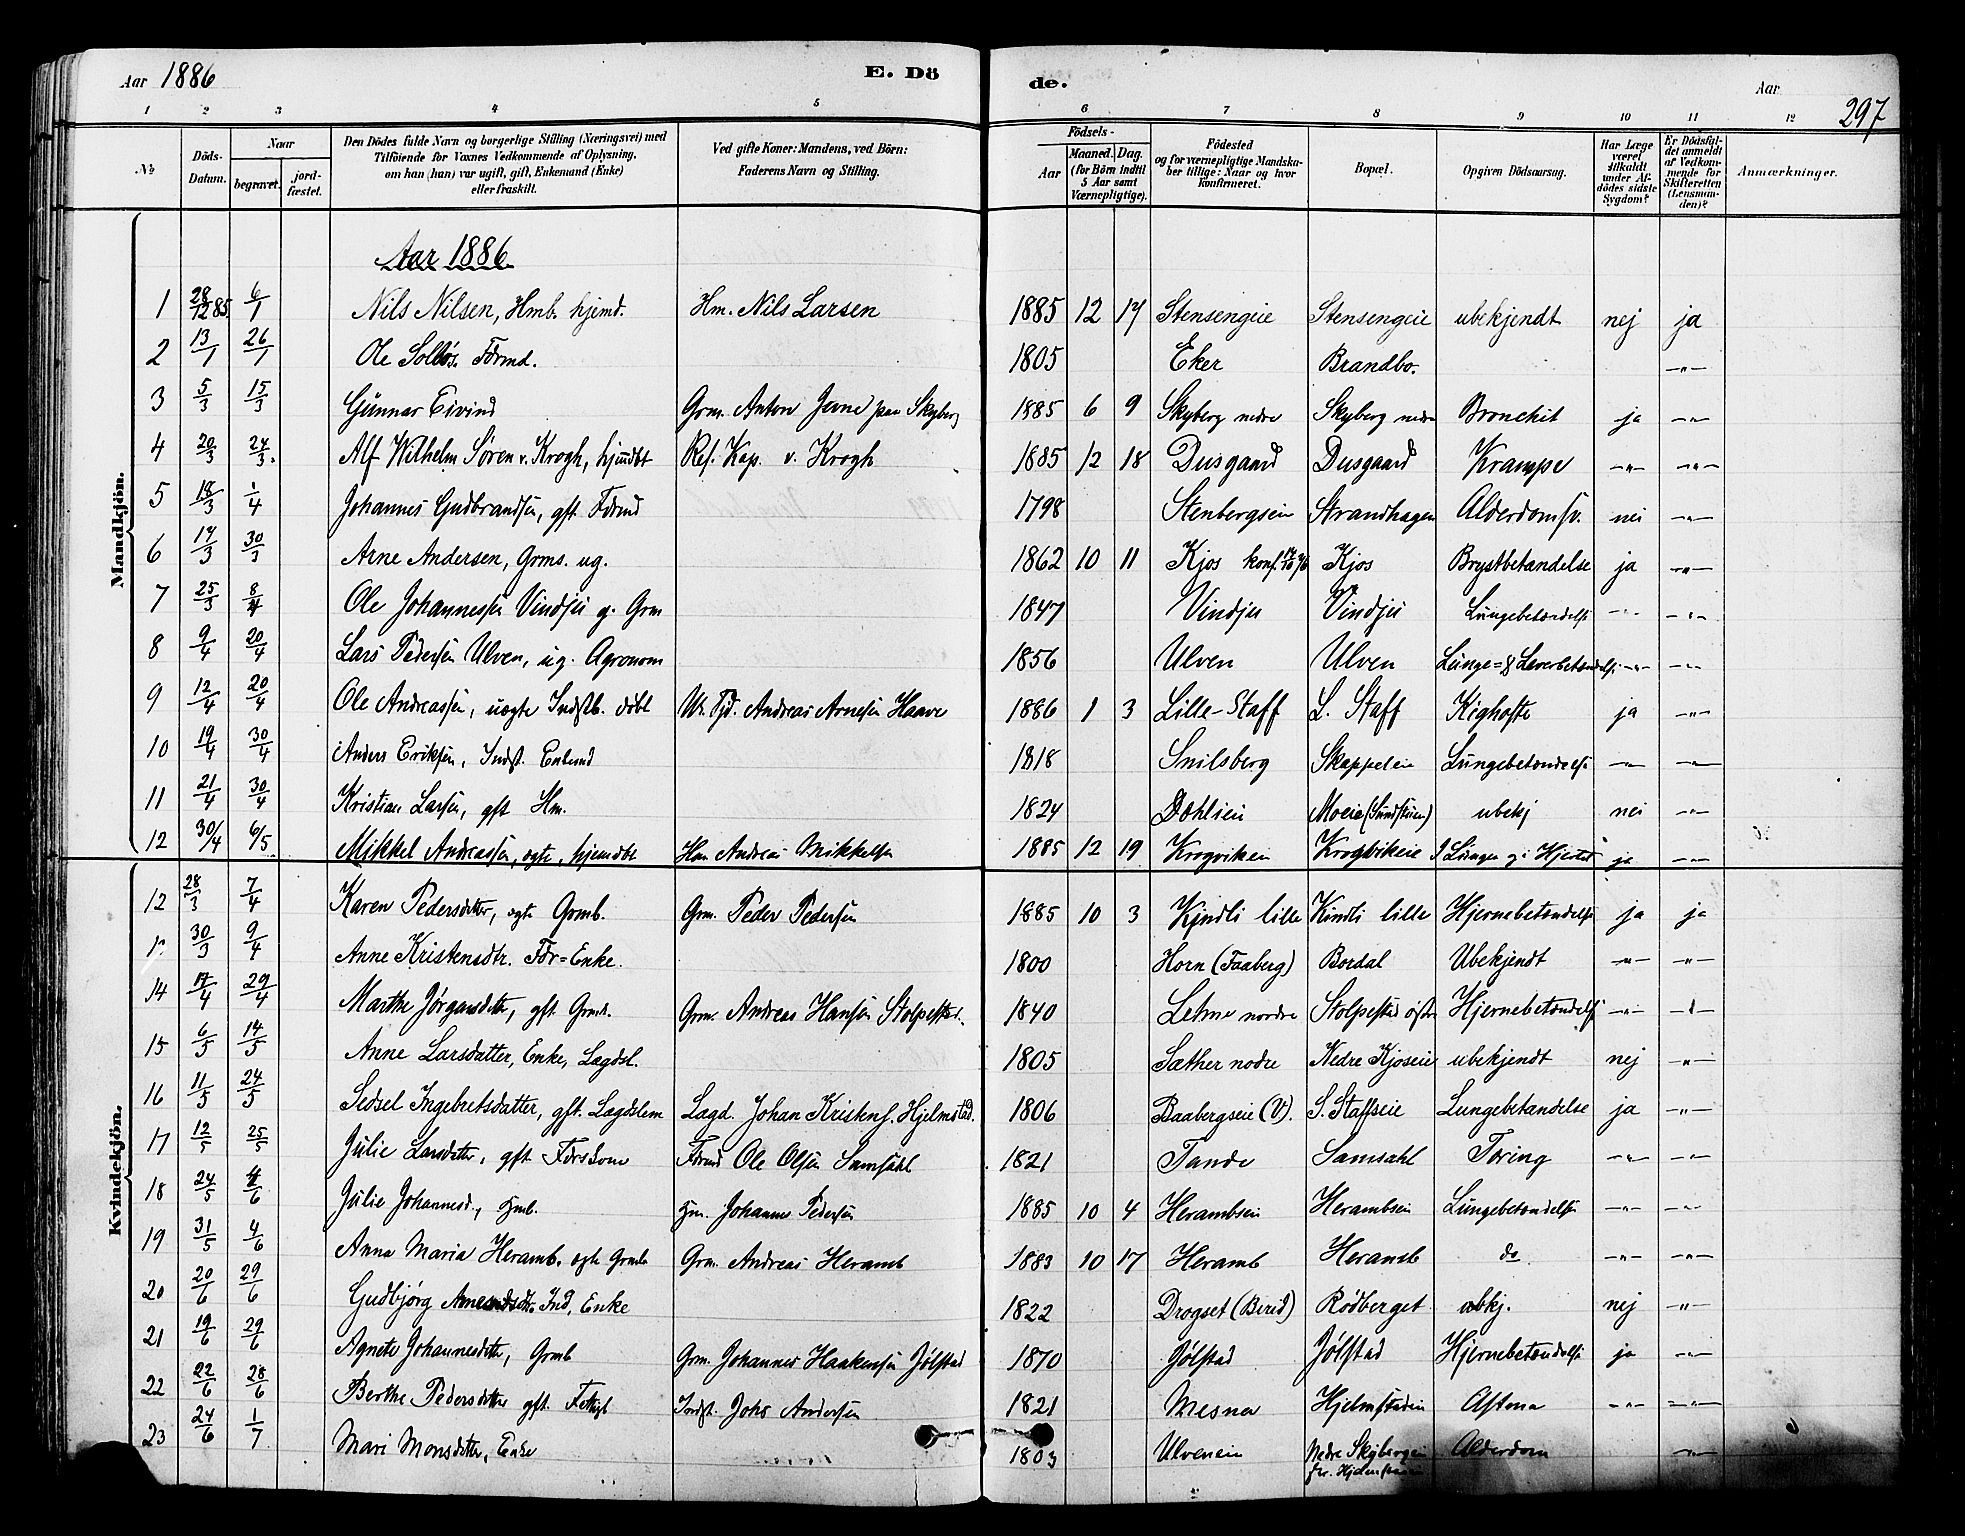 Aar 1886 E. Dö de. Aar 297
1 2 3 4 5 6 7 8 9 10 11 12
No Döds-Datum. Naar begravet. jord-fæstet. Den Dödes fulde Navn og borgerlige Stilling (Næringsvei) med Tilföiende for Voxnes Vedkommende af Oplysning, om han (hun) var ugift, gift, Enkemand (Enke) eller fraskilt. Ved gifte Koner: Mandens, ved Börn: Faderens Navn og Stilling. Födsels- Aar Maaned. Dag. (for Börn indtil 5 Aar samt Værnepligtige). Födested og for værnepligtige Mandskaber tillige: Naar og hvor konfirmeret. Bopæl. Opgiven Dödsaarsag. Har Læge været tilkaldt under Afdödes sidste Sygdom? Er Dödsfaldet anmeldt af Vedkommende for Skifteretten (Lensmanden)? Anmærkninger.
Mandkjön.
Aar 1886
1 28/12 85 6/1 Nils Nilsen, Hmb. hjemd. Hm. Nils Larsen 1885 12 17 Stensengeie Stensengeie ubekjendt nej ja
2 13/1 26/1 Ole Solbøs. Førmd. 1805 Eker Brandbo. -"-
3 5/3 15/3 Gunnar Eivind Grm. Anton Jevne paa Skyberg 1885 6 9 Skyberg nedre Skyberg nedre Bronchit ja -"-
4 20/3 24/3. Alf Wilhelm Søren v. Krogh, hjemdbt Ref. Kap. v. Krogh 1885 12 18 Dusgaard Dusgaard Krampe -"- -"-
5 18/3 1/4 Johannes Gudbrandsen, gft. Førmd 1798 Stenbergseie Strandhagen Alderdomsv. nei -"-
6 14/3 30/3 Arne Andersen, Grms. ug. 1862 10 11 Kjos konf. Kjos Brystbetændelse ja -"-
7 25/3 8/4 Ole Johannessen Vindju g. Grm 1847 Vindju Vindju Lungebetændelse -"- -"-
8 9/4 20/4 Lars Pedersen Ulven, ug. Agronom 1856 Ulven Ulven Lunge= & Leverbetændelse -"- -"-
9 12/4 20/4 Ole Andreassen, uægte Indstb. døbt Uk. Tjd. Andreas Arnesen Haave 1886 1 3 Lille-Staff L. Staff Kighoste ja -"-
10 19/4 30/4 Anders Eriksen, Indst. Enkemd 1818 Snilsberg Skappeleie Lungebetændelse -"- -"-
11 21/4 30/4 Kristian Larsen, gft Hm. 1824 Dahlseie Moeie (Sundsteien) ubekj nei -"-
12 30/4 6/5 Mikkel Andreassen, ægte, hjemdbt Hm Andreas Mikkelsen 1885 12 19 Krogviken Krogvikeie Lungen Hjertet ja -"-
Kvindekjön.
12 28/3 7/4 Karen Pedersdatter, ægte Grmb. Grm. Peder Pedersen 1885 10 3 Kjndli lille Kindli lille Hjernebetændelse ja ja
30/3 9/4 Anne Kristensdtr. Før=Enke. 1800 Horn (Faaberg) Bordal Ubekjendt -"- -"-
14 17/4 29/4 Marthe Jørgensdatter, gft. Grmk. Grm. Andreas Hansen Stolpestad. 1840 Lehne nordre Stolpestad østre Hjernebetændelse -"- -"-
15 6/5 14/5 Anne Larsdatter, Enke, Lægdsl. 1805 Sæther nedre Nedre Kjoseie ubekjendt nej -"-
16 11/5 24/5 Sidsel Ingebretsdatter, gft. Lægdslem Lægd. Johan Kristens. Hjelmstad. 1806 Baabergseie (V). S. Staffseie Lungebetændelse ja -"-
17 12/5 25/5 Julie Larsdatter, gft Førskone Førmd Ole Olsen Samsahl 1821 Tande Samsahl Tæring -"- -"-
18 24/5 4/6 Julie Johannesd., Hmb. Hm. Johannes Pedersen 1885 10 4 Herambseie Herambseie Lungebetændelse -"- -"-
19 31/5 4/6 Anna Maria Heramb. ægte Grmb Grm. Andreas Heramb 1883 10 17 Heramb Heramb do -"- -"-
20 20/6 29/6 Gudbjørg Ind, Enke 1822 Drogset (Birid) Rødberget ubkj. nej -"-
21 19/6 29/6 Agnete Johannesdtter, Grmb Grm. Johannes Haakensen Jølstad 1870 Jølstad Jølstad Hjernebetændelse ja -"-
22 22/6 28/6 Berthe Pedersdatter gft. Indst. Johs Andersen 1821 Mesna Hjelmstadeie Astma -"- -"-
23 24/6 1/7 Mari Monsdatter, Enke 1803 Ulveneie Nedre Skybergeie Alderdom -"-
fr. Hjelmstadeie